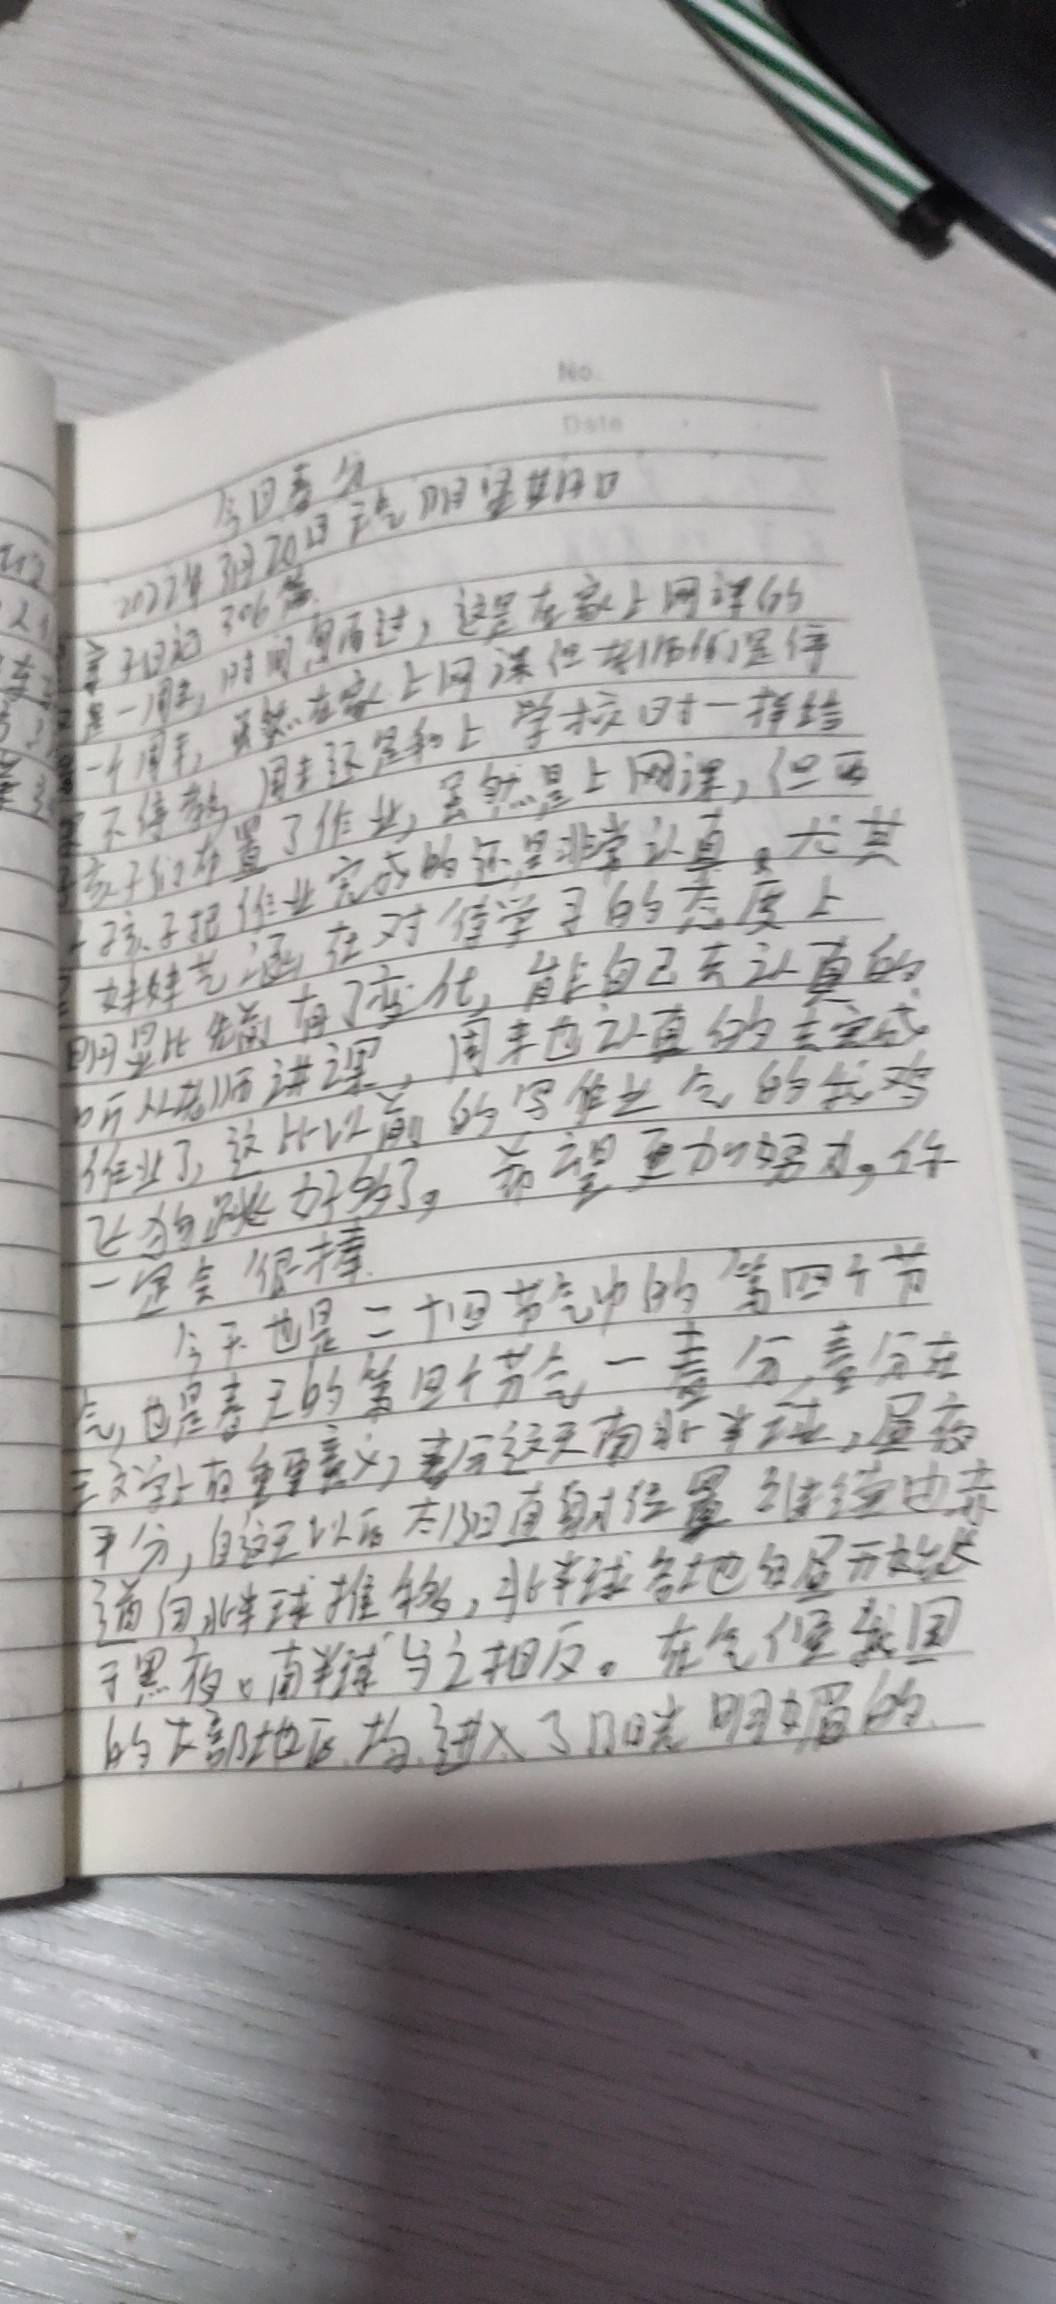 No.
Date
今日春分
2022年3月20日 天气 阴 星期日
亲子日记 306篇
是一周末，时间匆匆而过，这是在家上网课的
一个周末，虽然在家上网课但老师们是停
不停教，周末还是和上学校时一样给
孩子们布置了作业，虽然是上网课，但两
个孩子把作业完成的还是非常认真。尤其
妹妹艺涵在对待学习的态度上
明显比先前有了变化，能自己去认真的
听从老师讲课，周末也认真的去完成
作业了，这比以前的写作业气的我鸡
飞狗跳好多了。希望更加努力，你
一定会很棒
今天也是二十四节气中的第四个节
气，也是春天的第四个节气一春分，春分在
天文学上有重要意义，春分这天南北半球，昼夜
平分，自这天以后太阳直射位置继续由赤
道向北半球推移，北半球各地白昼开始长
于黑夜。南半球与之相反。在气候我国
的大部地区均进入了阳光明媚的